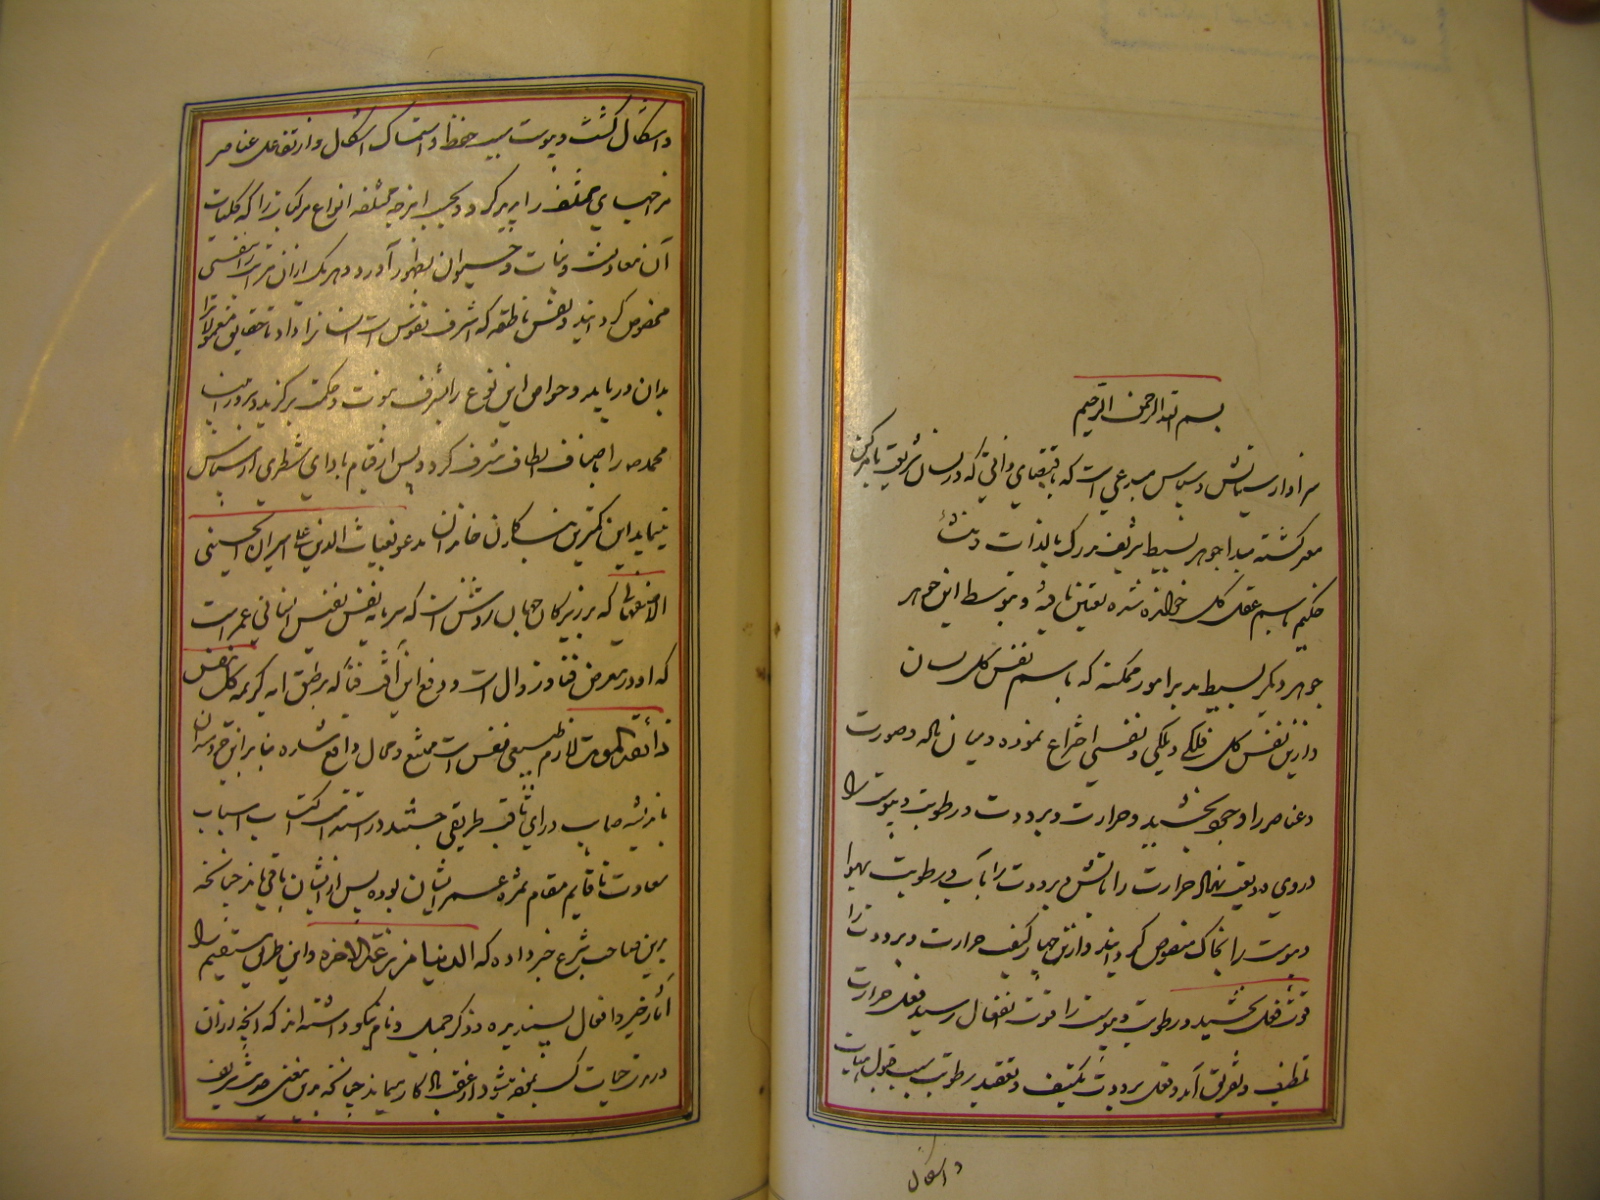 بسم الله الرحمن الرحیم
سزاوار ستایش و سپاس مبدعی است که باقتضای ذاتی که در لسان شریعت بامر کن
معبر گشته مبدأ جوهر بسیط شریف مدرک بالذات
حکیم باسم عقل کل خوانده شده تعین یافته و بتوسط این جوهر
جوهر دیگر بسیط مدبر امور ممکنه که باسم نفس کل
و ازین نفس کل فلکی و ملکی و نفسی اختراع نموده و میان ناله و صورت
و عناصر را وجود بخشید و حرارت و برودت و رطوبت و یبوست را
در وی ودیعت نهاد حرارت را باتش و برودت را باب و رطوبت بهوا
و یبوست را بخاک مخصوص گردانید و ازین چهار کیف حرارت و برودت را
قوت فعل بخشید و رطوبت و یبوست را قوت انفعال رسید فعل حرارت
تلطیف و تفریق آمد و فعل برودت تکثیف و تعقید رطوبت سبب قبول هیأت
و اشکال
و اشکال گشت و یبوست سبب حفظ و استمساک اشکال و از تفاعل عناصر
مزاجهای مختلف را پدید کرد و بحسب امزجه مختلفه انواع مرکبات را که کلیات
آن معادنست و نبات و حیوان بظهور آورد و هر یک از ان مرکبات را بنفسی
مخصوص گردانید و نفس ناطقه که اشرف نفوس است انسانرا داد تا حقایق معقولات را
بدان دریابد و خواص این نوع را بشرف نبوت و حکمت برگزید و
محمد ص را باصناف الطاف مشرف کرد و پس از قیام بادای شطری از سپاس
مینماید این کمترین بندگان خاندان مدعو بغیاث الدین علی امیران الحسینی
الاصفهانی که بر زیرکان جهان روشن است که سرمایه نفس نفیس انسانی عمر است
که او در معرض فنا و زوال است و دفع این آفت فنا که بر طبق ایه کریمه کل نفس
ذائقة الموت لازم طبیعی نفس است ممتنع و محال واقع شده بنا برین خردمندان
باندیشه صایب و رای ثاقب طریقی جستند در استدامت اکتساب اسباب
سعادت تا قایم مقام ثمره عمر ایشان بوده پس از ایشان باقی ماند چنانچه
برین صاحب شرع خبر داده که الدنیا مزرعة الاخرة و این طریق مستقیم را
آثار خیر و افعال پسندیده و ذکر جمیل و نام نیکو دانسته اند که آنچه در ان
در مدت حیات کسب بمعنی حدیث شریف